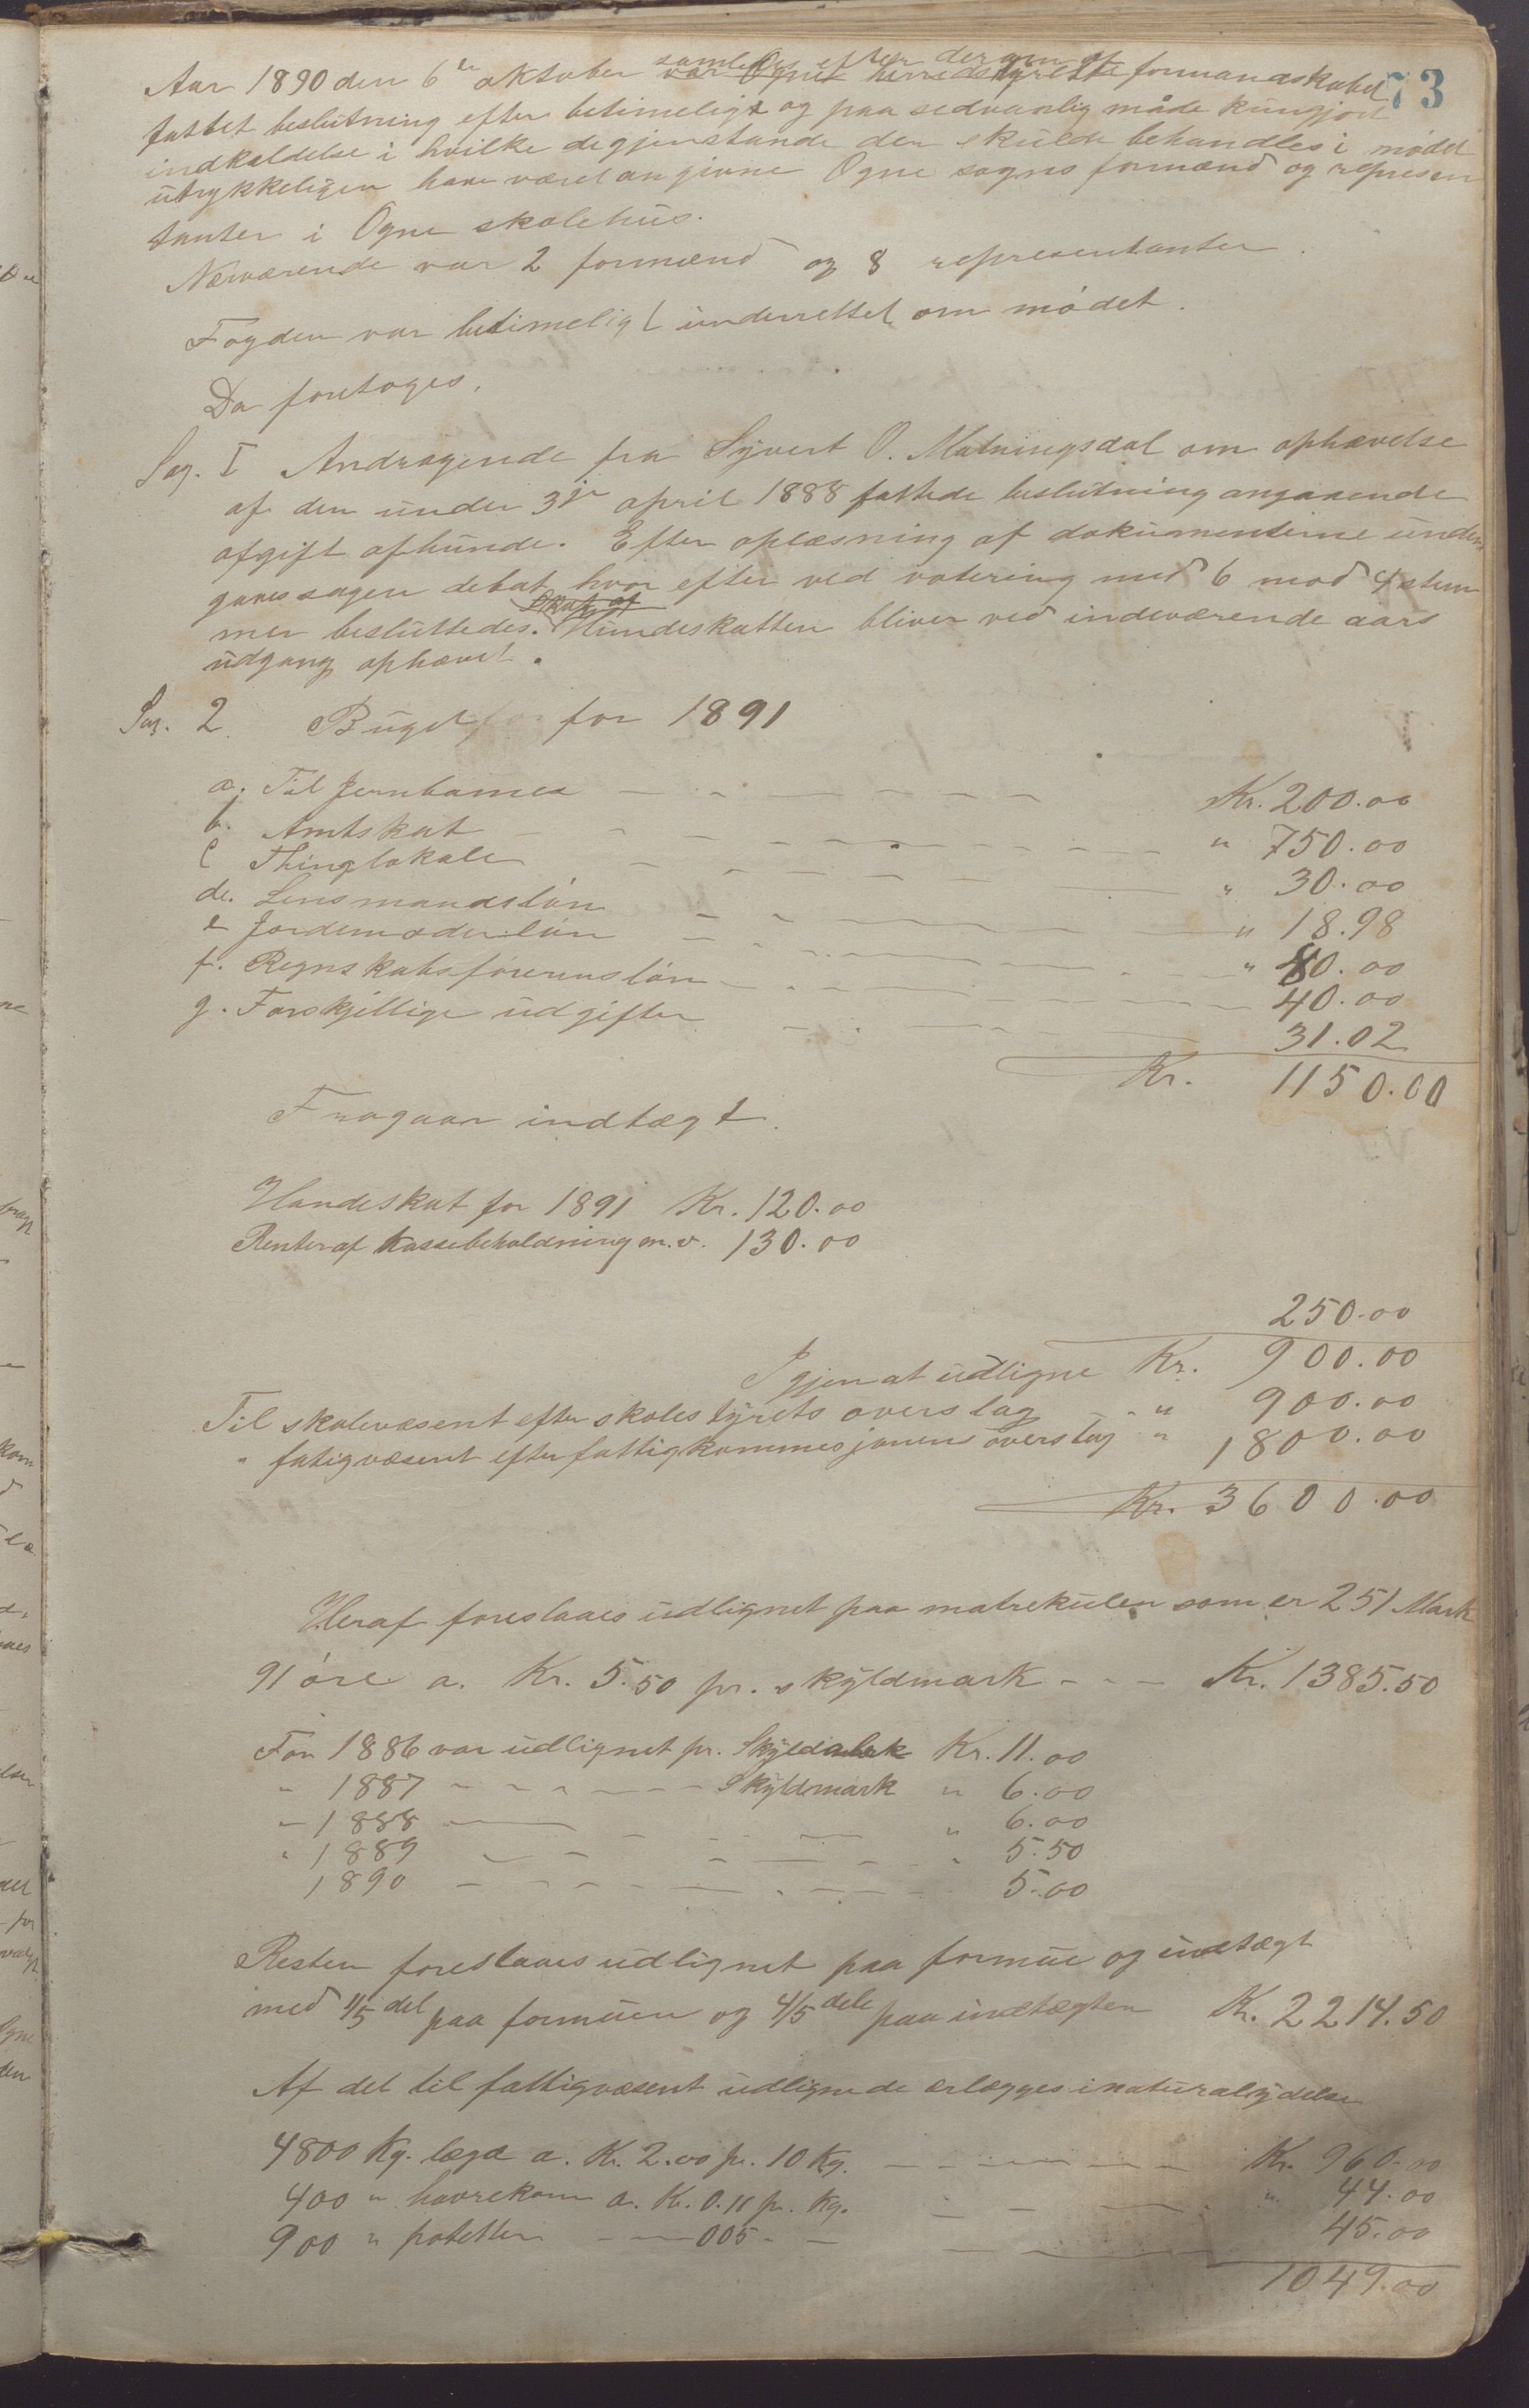 73
Aar 1890 den 6te oktober samledes efter derom af formandskabet
fattet beslutning efter betimeligt og paa sedvanlig måde kungjort
indkaldelse i hvilke de gjenstande der skulde behandles i mødet
utrykkeligen have været angivne Ogne sogns formænd og represen
tanter i Ogne skolehus.
Nærværende var 2 formænd og 8 representanter.
Fogden var betimeligt underrettet om mødet.
Da foretoges.
Sag. I Andragende fra Syvert O. Matningsdal om ophævelse
af den under 3je april 1888 fattede beslutning angaaende
afgift af hunde. Efter oplæsning af dokumenterne under
gaves sagen debat, hvor efter ved votering med 6 mod 4 stem
mer besluttedes. Hundeskatten bliver ved indeværende aars
udgang ophævet.
Sag. 2 Buget for 1891
a. Til Jernbanen Kr. 200.00
b. Amtskat " 750.00
c Thinglokale " 30.00
de. Lensmandsløn " 18.98
e Jordemoderløn " 80.00
f. Regnskabsførerensløn 40.00
g. Forskjellige udgifter 31.02
Kr. 1150.00
Fragaar indtægt.
Hundeskat for 1891 Kr. 120.00
Renter af kassebeholdning m.v. 130.00
250.00
Igjen at udligne Kr. 900.00
Til skolevæsent efter skolestyrets overslag " 900.00
" fatigvæsent efter fattigkommesjonens overslag " 1800.00
Kr. 3600.00
Heraf foreslaaes udlignet paa matrekulen som er 251 Mark
91 øre a. Kr. 5.50 pr. skyldmark - - - Kr. 1385.50
For 1886 var udlignet pr. Skyldmark Kr. 11.00
" 1887 - - - - Skyldmark " 6.00
" 1888 " 6.00
" 1889 " 5.50
1890 5.00
Resten foreslaaes udlignet paa formue og indtægt
med 1/5 del paa formuen og 4/5 dele paa indtægten Kr. 2214.50
Af det til fattigvæsent udlignede erlægges i naturalydelse
4800 Kg. lægd a. Kr. 2.00 pr. 10 Kg. Kr. 960.00
400 " havrekorn a. Kr. 0.11 pr. Kg. " 44.00
900 " potetter - - 005 - - 45.00
1049.00